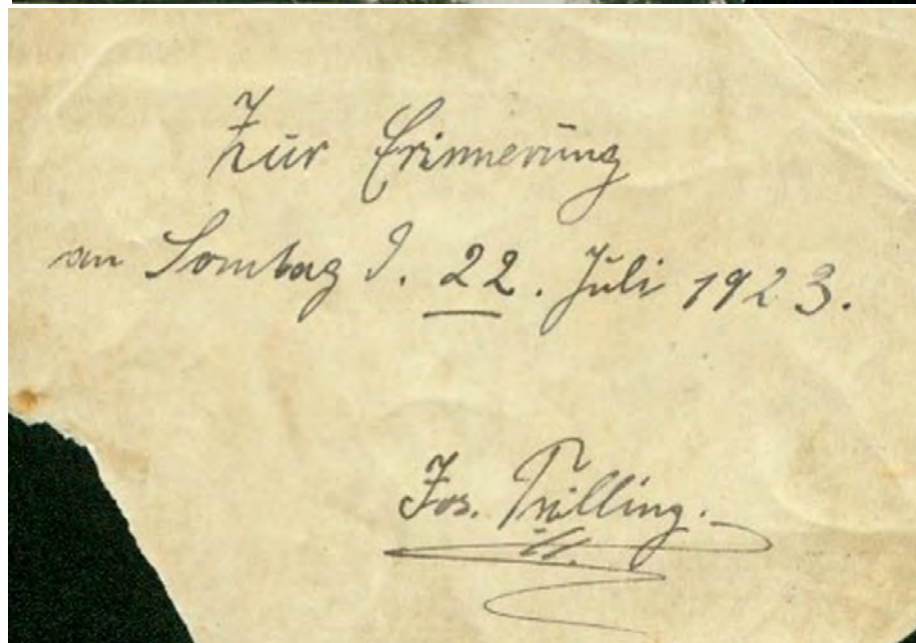 Zur Erinnerung
an Sonntag d. 22. Juli 1923.
Jos.